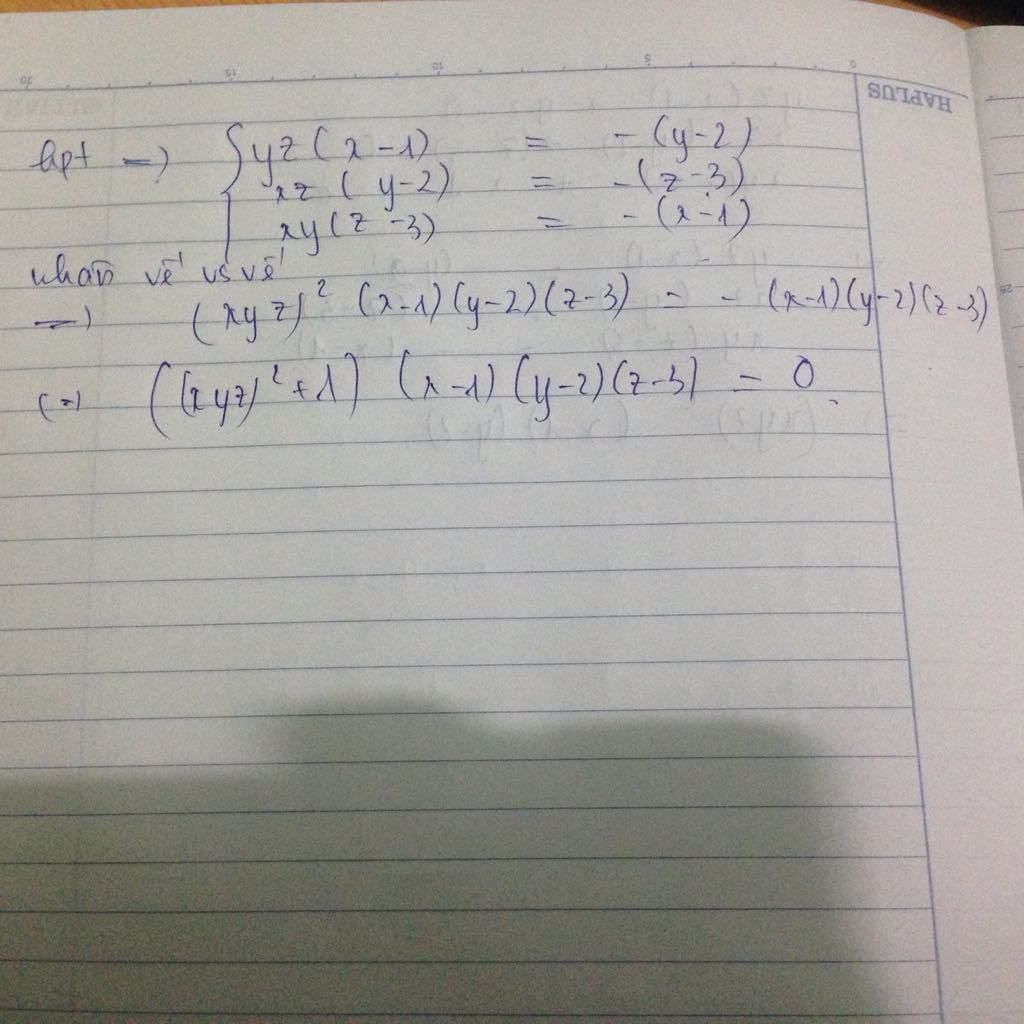 HAPLUS
hpt => { yz(x-1) = -(y-2)
xz(y-2) = -(z-3)
xy(z-3) = -(x-1)
nhân vế vs vế
=> (xyz)² (x-1)(y-2)(z-3) = -(x-1)(y-2)(z-3)
(=) ((xyz)²+1) (x-1)(y-2)(z-3) = 0